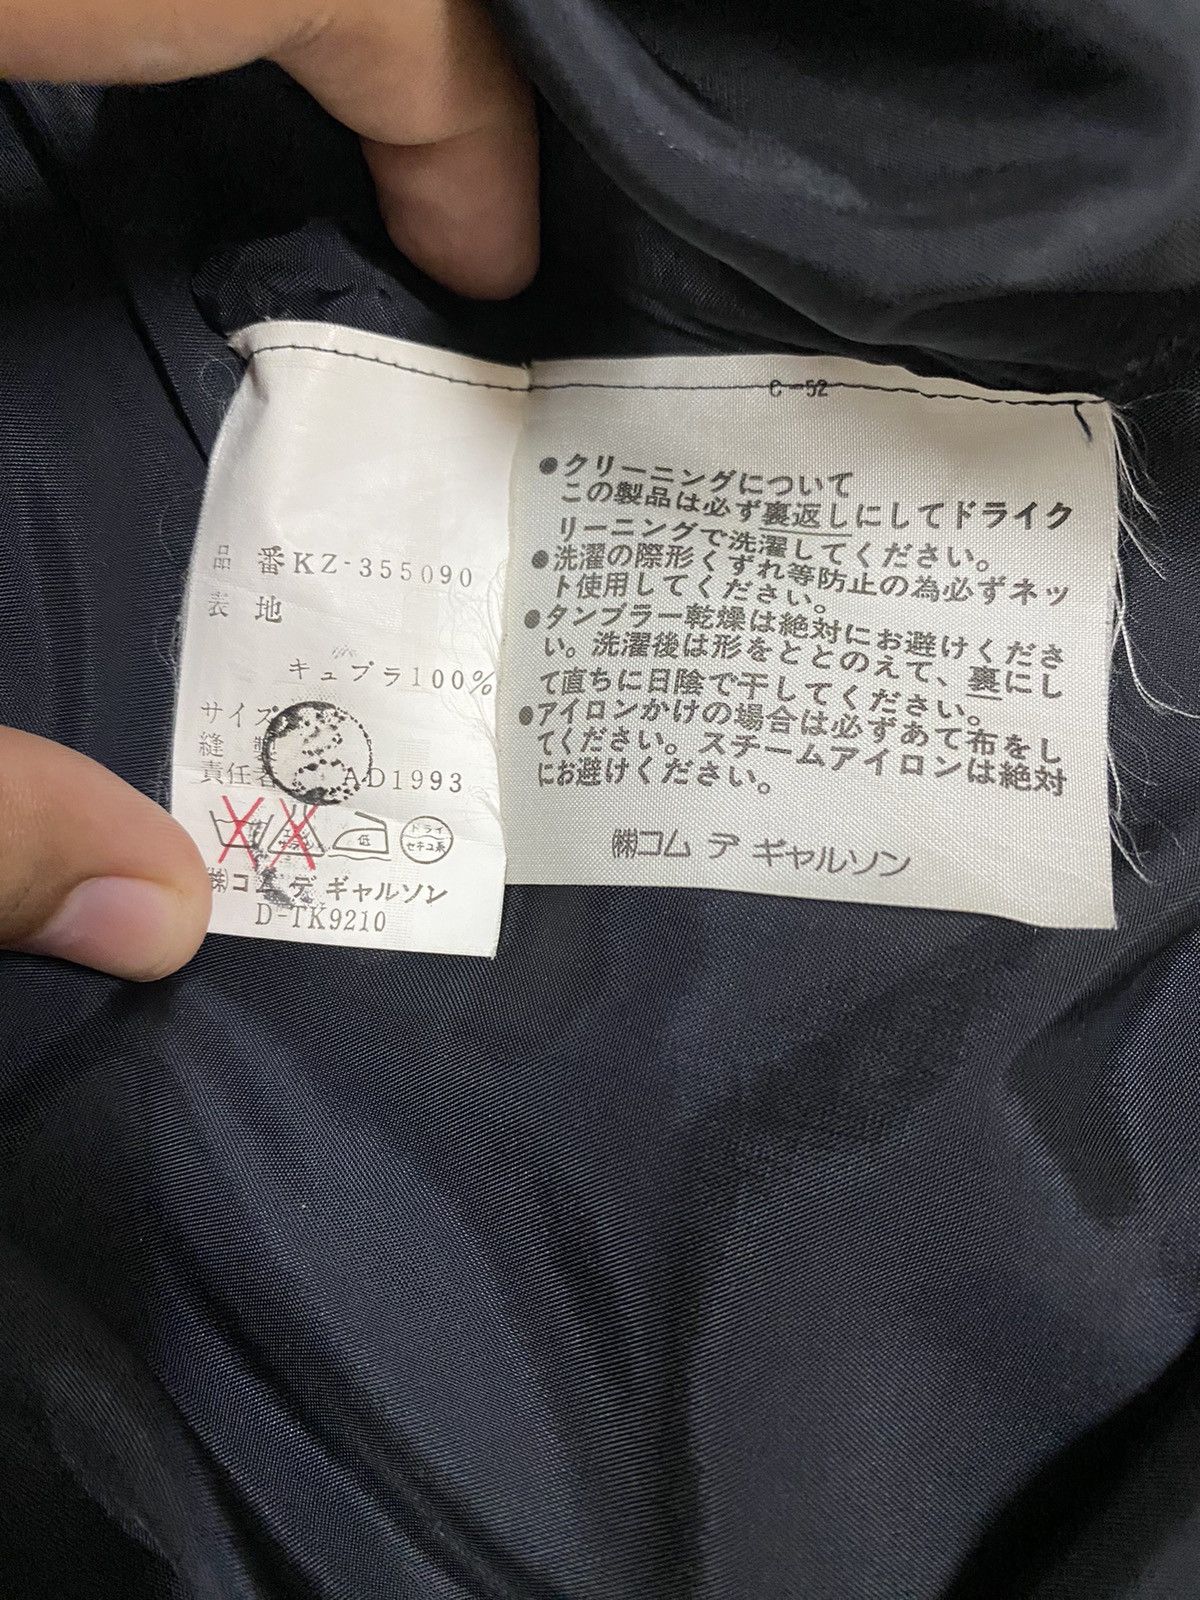 品 番 KZ-355090
表 地
キュプラ100%
サイズ
縫 製
責任者 AD1993
エンソ
サラシ
低
ドライ
セキユ系
㈱コム デ ギャルソン
D-TK9210
C-52
●クリーニングについて
この製品は必ず裏返しにしてドライク
リーニングで洗濯してください。
●洗濯の際形くずれ等防止の為必ずネッ
ト使用してください。
●タンブラー乾燥は絶対にお避けくださ
い。洗濯後は形をととのえて、裏にし
て直ちに日陰で干してください。
●アイロンかけの場合は必ずあて布をし
てください。スチームアイロンは絶対
にお避けください。
㈱コム デ ギャルソン